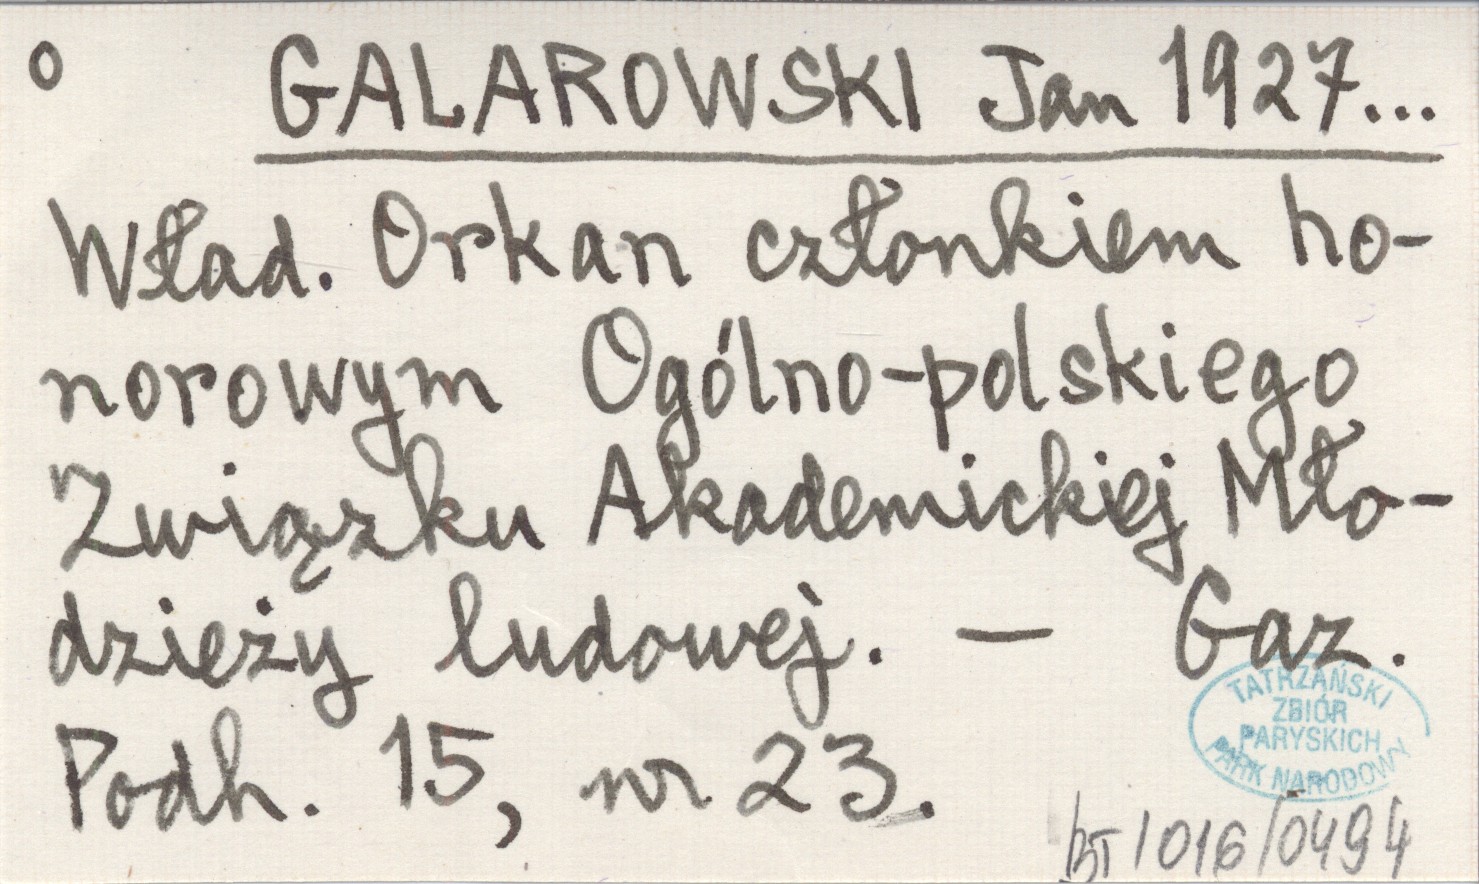 o GALAROWSKI Jan 1927...
Wład. Orkan członkiem ho-
norowym Ogólno-polskiego
Związku Akademickiej Mło-
dzieży ludowej. — Gaz.
Podh. 15, nr 23.
TATRZAŃSKI
ZBIÓR
PARYSKICH
PARK NARODOWY
BT/016/0494